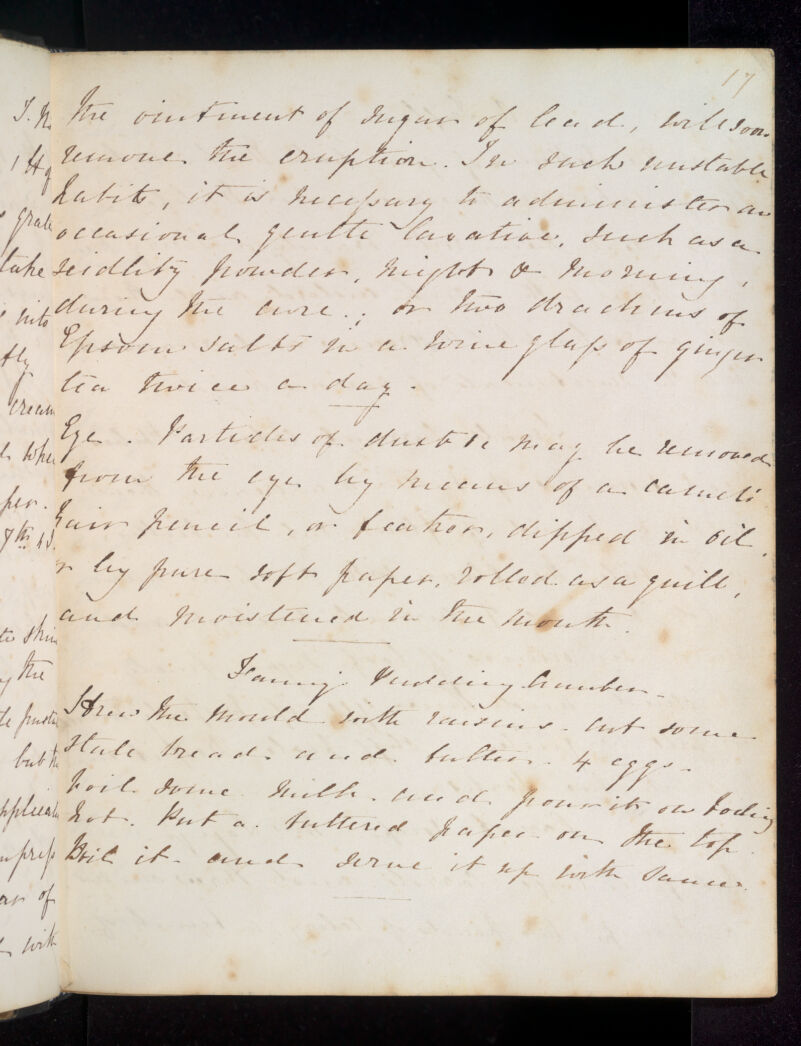 17
The ointment of sugar of lead, will soon
remove the eruption. In such unstable
habits, it is necessary to administer an
occasional gentle laxative, such as a
seidlity powder, night & morning,
during the cure.; or two drachms of
Epsom salts in a wine glass of ginger
tea twice a day.
Eye. Particles of dust &c may be removed
from the eye by means of a camel's
hair pencil, or feather, dipped in oil,
or by pure soft paper, rolled as a quill,
and moistened in the mouth.
Pudding
Strew the mould with raisins. cut some
stale bread and butter. 4 eggs.
boil some milk. and pour it on boiling
hot. Put a buttered paper on the top.
Boil it and serve it up with sauce.
T.
1
grate
take
into
tly
cream
per.
7th
skin
the
but the
of
with